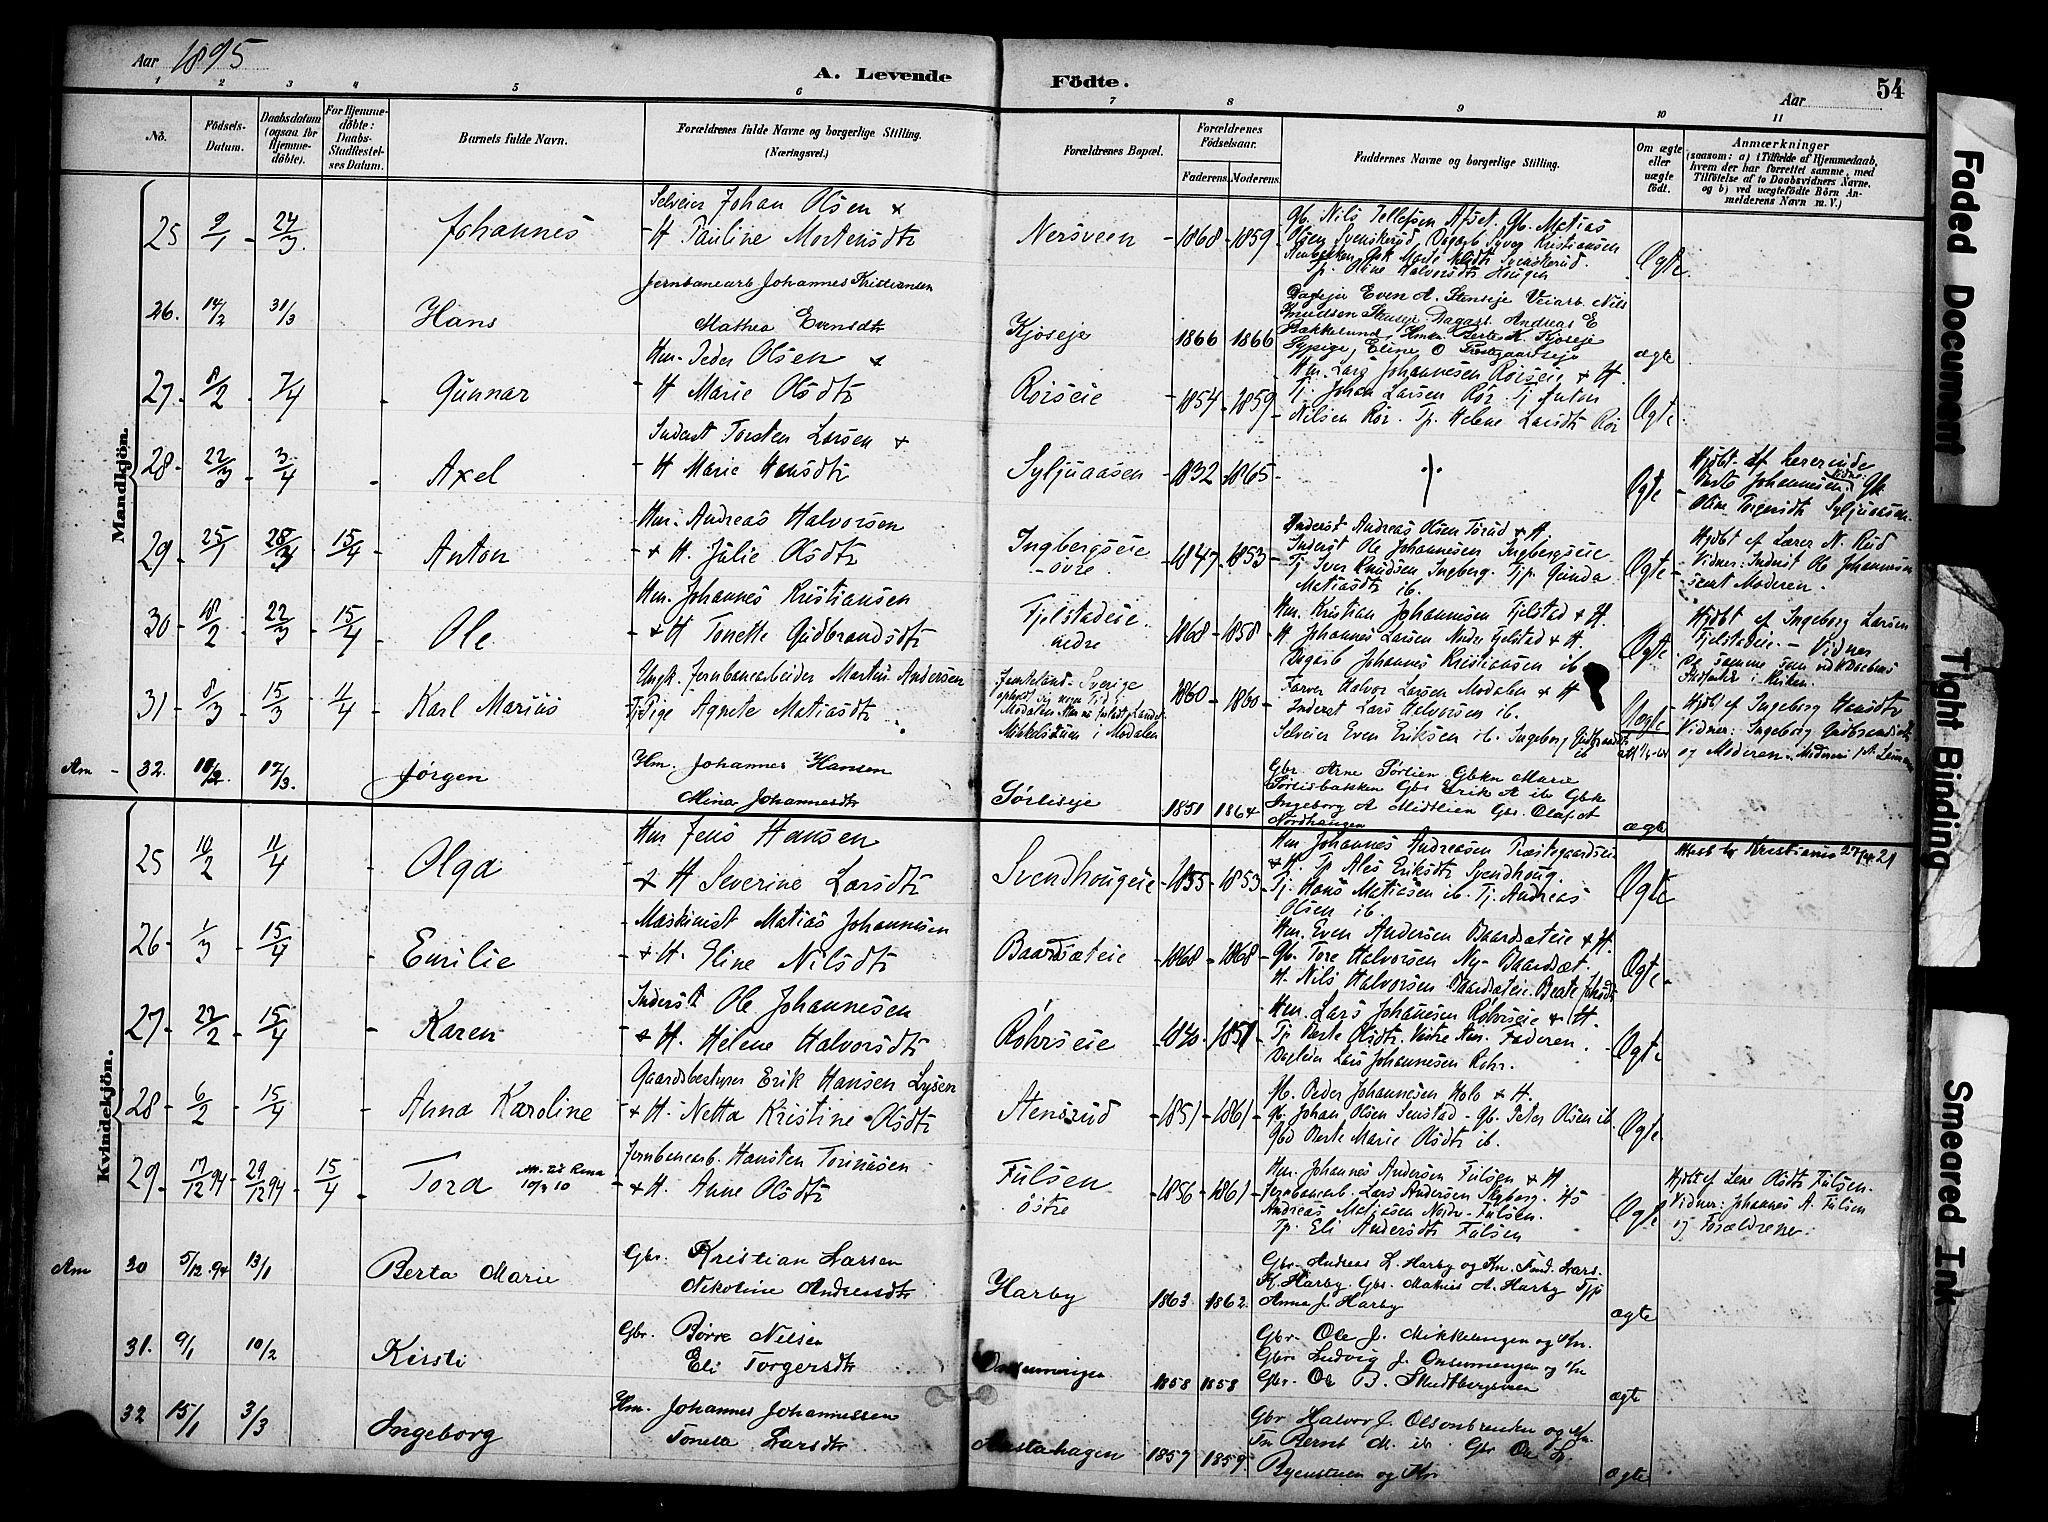 Aar 1895
A. Levende Födte.
Aar
54
1 2 3 4 5 6 7 8 9 10 11
No.
Födsels-Datum.
Daabsdatum (ogsaa for Hjemmedöbte).
For Hjemmedöbte: Daabs-Stadfæstelses Datum.
Barnets fulde Navn.
Forældrenes fulde Navne og borgerlige Stilling. (Næringsvei.)
Forældrenes Bopæl.
Forældrenes Födselsaar.
Faderens. Moderens.
Faddernes Navne og borgerlige Stilling.
Om ægte eller uægte født.
Anmærkninger
(saasom: a) i Tilfælde af Hjemmedaab, hvem der har forrettet samme, med Tilföielse af to Daabsvidners Navne, og b) ved uægtefödte Börn Anmelderens Navn m. V.)
Mandkjön.
25 9/1 24/3 Johannes
Selveier Johan Olsen +
H Pauline Mortensdtr
Nersveen 1868 1859
Gb. Nils Tellefsen Afset. Gb. Matias
Olsen Svenskerud, Dagarb Syver Kristiansen
Tp. Oline Halvorsdtr Hougen
Ægte
26. 14/2 31/3 Hans
Jernbanearb Johannes Kristiansen
Mathea Evensdtr
Kjøseje 1866 1866
Even A. Stenseje Veiarb. Nils
Knudsen Dagarb. Andreas E
Bakkelund Berte K. Kjøseje
Sypige, Eline O
ægte
27. 8/2 7/4 Gunnar
Hm. Peder Olsen +
H Marie Olsdtr
Rørseie 1854 1859
Hm. Lars Johannesen Rørseie + H.
Tj. Johan Larsen Rør. Tj Anton
Nilsen Rør. Tp. Helene Larsdtr Rør
Ægte
28 22/3 3/4 Axel
Inderst Torsten Larsen +
H Marie Hansdtr
Syljuaasen 1832 1865
Ægte
Hjdbt. af Lærerinde
Berte Johannesen. Gk
Oline Torgersdtr Syljuaasen
29 25/1 28/3 15/4 Anton
Hm. Andreas Halvorsen
+ H. Julie Olsdtr
Ingbergseie øvre 1847 1853
Inderst Andreas Olsen Torud + H
Inderst Ole Johannesen Ingbergseie
Tj Iver Knudsen Ingberg. Tjp. Gunda
Matiasdtr ib.
Ægte
Hjdbt af Lærer N. Rud
Vidner: Inderst Ole Johannesen
samt Moderen.
30 18/2 22/3 15/4 Ole
Hm. Johannes Kristiansen
+ H Tonette Gudbrandsdtr
Fjelstadeie nedre 1868 1858
Hm. Kristian Johannesen Fjelstad + H.
H. Johannes Larsen Nedre Fjelstad + H.
Dagarb Johannes Kristiansen ib
Ægte
Hjdbt af Ingeborg Larsen
Fjelstadeie - Vidner
31 8/3 15/3 4/4 Karl Marius
Ungk. Jernbanearbeider Martin Andersen
Tj. Pige Agnete Matiasdtr
Jemteland - Sverige
1860 1860
Farver Halvor Larsen Modalen + H
Inderst Lars Halvorsen ib.
Selveier Even Eriksen ib. Ingeborg Gudbrandsdtr ib
Uægte
Hjdbt af Ingeborg Hansdtr
Vidner: Ingeborg Gudbrandsdtr
og Moderen.
Am 32. 10/2 17/3. Jørgen
Hm. Johannes Hansen
Mina Johannesdtr
Sørlieseje 1851 1864
Gbr. Arne Sørlien Gbkn Marie
Sørliesbakken Gbr Erik A ib Gbk
Ingeborg A Midtlien Gbr. Olaf
Nordhaugen
ægte
Kvindekjön.
25 10/2 11/4 Olga
Hm Jens Hansen
+ H Severine Larsdtr
Svendhougeie 1855 1853
Hm Johannes Andreasen Præstegaardseie
+ H. Tp Ales Eriksdtr Svendhoug.
Tj. Hans Matiasen ib. Tj. Andreas
Olsen ib.
Ægte
Attest Kristiania 21
26 1/3 15/4 Emilie
Maskinist Matias Johannesen
+ H. Eline Nilsdtr
Baardsæteie 1868 1868
Hm. Even Andersen Baardsæteie + H.
Gb. Tore Halvorsen Ny-Baardsæt.
H. Nils Halvorsen Baardsæteie. Beate
Ægte
27 22/2 15/4 Karen
Inderst Ole Johannesen
+ H. Helene Halvorsdtr
Røhrseie 1851
Hm. Lars Johannesen Røhrseie + H.
Tp Berte Olsdtr. Faderen.
Lars Johannesen Røhr.
Ægte
28 6/2 15/4 Anna Karoline
Gaardsbestyrer Erik Hansen Lysen
+ H. Netta Kristine Olsdtr
Stensrud 1851 1861
Gb. Peder Johannesen Holo + H.
Gb. Johan Olsen Senstad. Gb. Peter Olsen ib.
Gbd Berte Marie Olsdtr ib.
Ægte
29 17/12 94 29/12 94 15/4 Tora
Jernbanearb. Hansten Torinusen
+ H. Anne Olsdtr
Fulsen østre 1856 1861
Hm. Johannes Andersen Fulsen + H
Jernbanearb. Lars Andersen
Andreas Matiasen Nordre Fulsen.
Tp. Eli Andersdtr Fulsen
Ægte
Hjdbt af Lene Olsdtr Fulsen.
Vidner: Johannes A. Fulsen
og Forældrene.
Am 30 5/12. 94 13/1 Berta Marie
Gbr. Kristian Larsen
Nikoline Andersdtr
Harby 1863 1862.
Gbr. Andreas L. Harby og Kn. Lars
K. Harby. Gbr. Mathias A. Harby Tjp
Anna J. Harby
ægte
31. 9/1 10/2 Kirsti
Gbr. Børre Nilsen
Eli Torgersdtr
1858 1858
Gbr. Ole J. Mikkelengen og Kn.
Gbr. Ludvig J. Onsumengen og Kn
Gbr. Ole B.
ægte
32 15/1 3/3 Ingeborg
Hm. Johannes Johannessen
Tonetta Larsdtr
1857 1859
Gbr Halvor J. og Kn.
Bernt M. ib. Gbr Ole L.
og Kn
ægte
Faded Document
Tight Binding
Smeared Ink